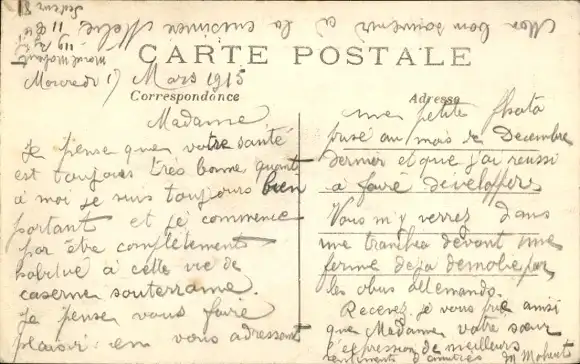 Mon bon souvenir à la cuisinière
CARTE POSTALE
Mercredi 17 Mars 1915
Correspondance
Adresse
Madame,
Je pense que votre santé
est toujours très bonne, quant
à moi je suis toujours bien
portant et je commence
par être complètement
habitué à cette vie de
caserne souterraine.
Je pense vous faire
plaisir en vous adressant
une petite photo
prise au mois de Decembre
dernier et que j'ai réussi
à faire developper
Vous m'y verrez dans
une tranchée devant une
ferme deja démolie par
les obus allemands.
Recevez, je vous prie ainsi
que Madame votre sœur
l'expression de meilleurs
sentiments d'amitiés